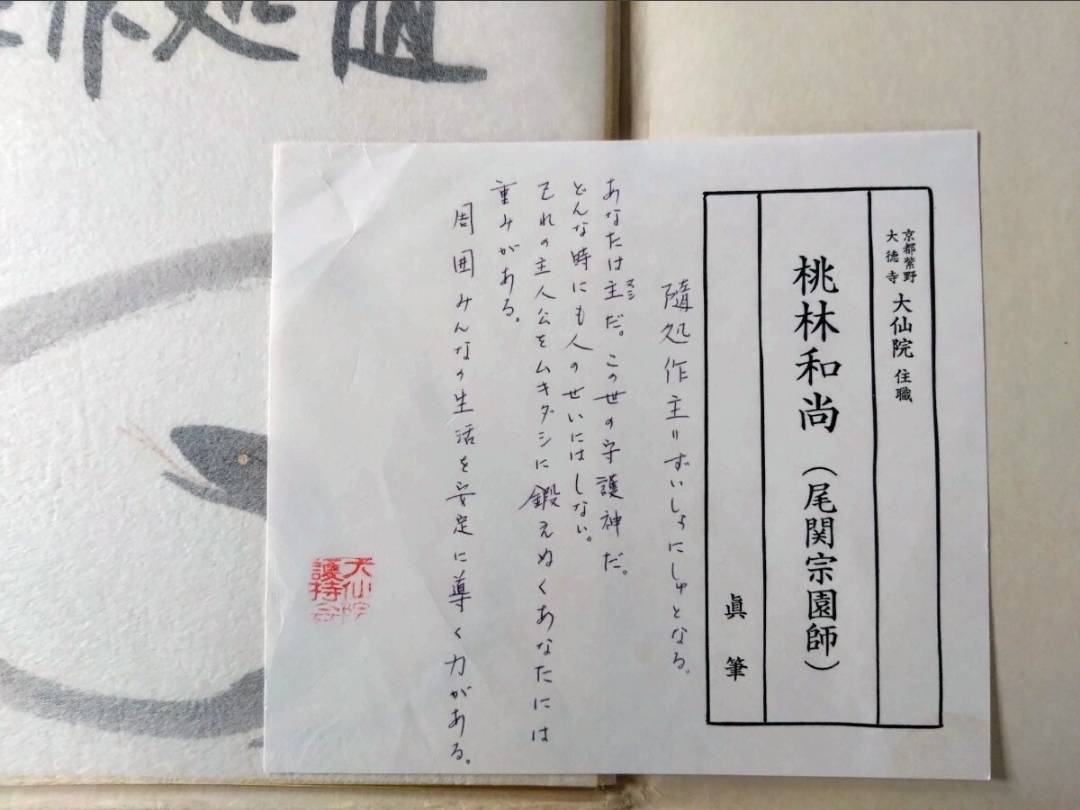 京都紫野
大徳寺
大仙院 住職
桃林和尚 (尾関宗園師)
眞筆
隨処作主〃ずいしょにしゅとなる。
あなたは主ヌシだ。この世の守護神だ。
どんな時にも人のせいにはしない。
それの主人公をムキダシに鍛えぬくあなたには
重みがある。
周囲みんなの生活を安定に導く力がある。
大仙院
護持会
作処